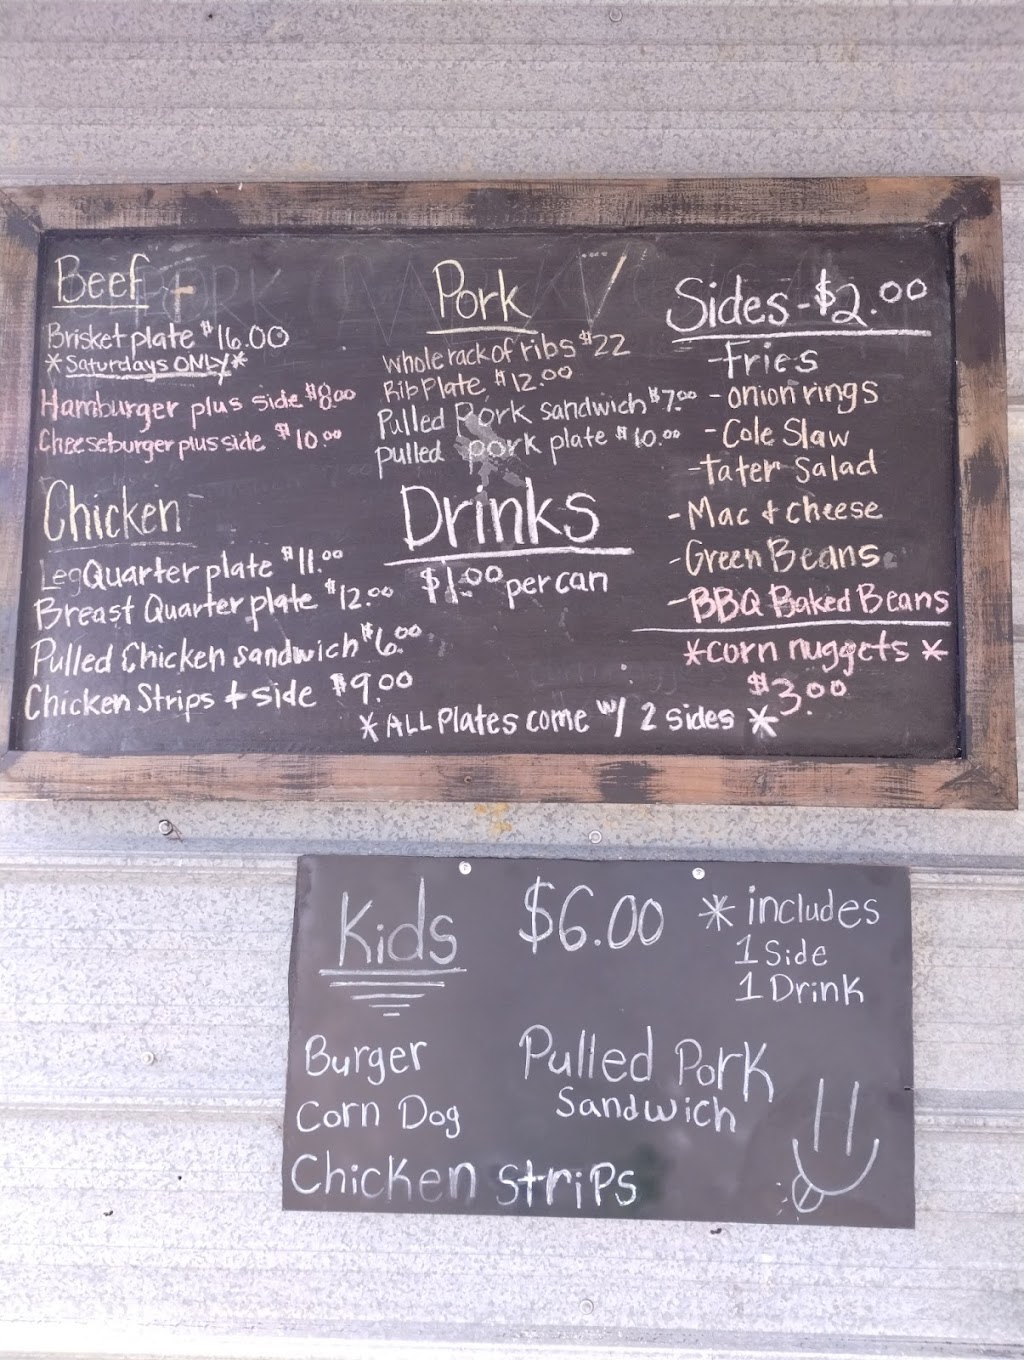 Beef
Brisket plate $16.00
*Saturdays ONLY*
Hamburger plus side $8.00
Cheeseburger plus side $10.00
Chicken
Leg Quarter plate $11.00
Breast Quarter plate $12.00
Pulled Chicken sandwich $6.00
Chicken Strips + side $9.00
Pork
whole rack of ribs $22
Rib Plate $12.00
Pulled Pork sandwich $7.00
pulled pork plate $10.00
Drinks
$1.00 per can
Sides - $2.00
- Fries
- onion rings
- Cole Slaw
- Tater Salad
- Mac + cheese
- Green Beans
- BBQ Baked Beans
*corn nuggets*
$3.00
*ALL Plates come w/ 2 sides*
Kids $6.00 * includes
1 Side
1 Drink
Burger
Corn Dog
Chicken Strips
Pulled Pork
Sandwich